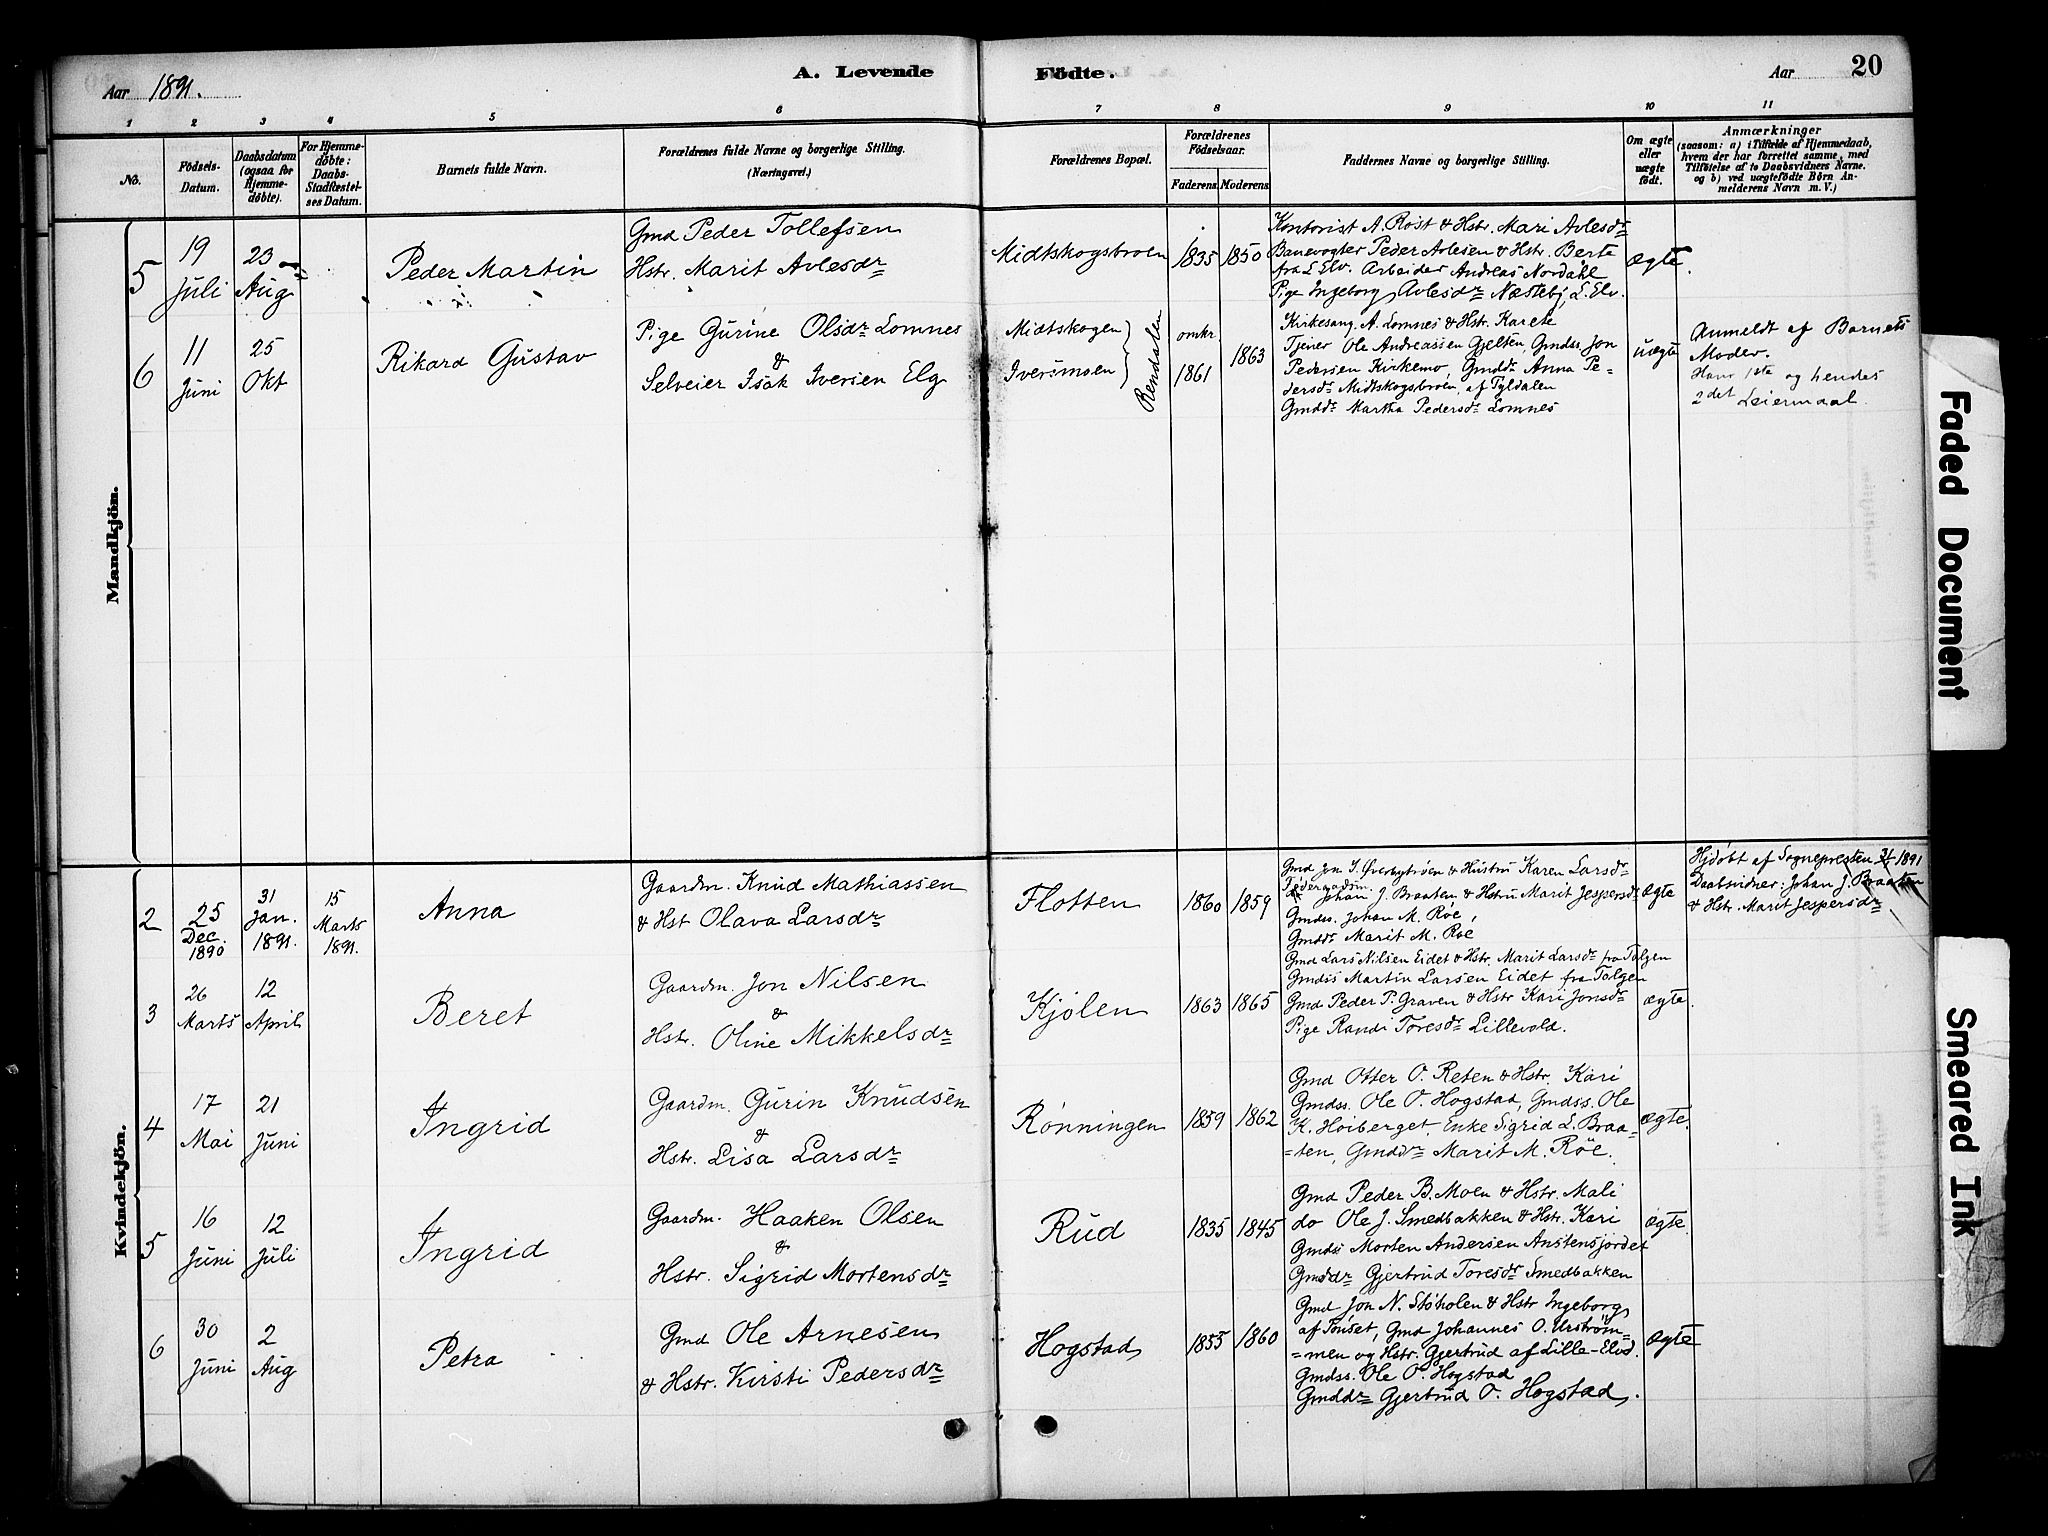 Aar 1891.
A. Levende Födte.
Aar
20
1 2 3 4 5 6 7 8 9 10 11
No.
Födsels-Datum.
Daabsdatum (ogsaa for Hjemme-döbte).
For Hjemme-döbte: Daabs-Stadfæstel-ses Datum.
Barnets fulde Navn.
Forældrenes fulde Navne og borgerlige Stilling.
(Næringsvei.)
Forældrenes Bopæl.
Forældrenes Födselsaar.
Faderens. Moderens.
Faddernes Navne og borgerlige Stilling.
Om ægte eller uægte födt.
Anmærkninger
(saasom: a) i Tilfælde af Hjemmedaab,
hvem der har forrettet samme, med
Tilföielse af to Daabsvidners Navne.
og b) ved uægtefödte Börn An-
melderens Navn m. V.)
Mandkjön.
5
19 Juli
23 Aug
Peder Martin
Gmd Peder Tollefsen
Hstr. Marit Avlesdr
Midtskogsbroen
1835 1850
Kontorist A. Rost & Hstr. Mari Avlesdr
Banevogter Peder Avlesen & Hstr. Berte
fra L Elv. Arbeider Andreas Nordahl
Pige Ingeborg Avlesdr Næstebj, L. Elv.
ægte.
6
11 Juni
25 Okt
Rikard Gustav
Pige Gurine Olsdr Lomnes
&
Selveier Isak Iversen Elg
Midtskogen
Iversmoen
Rendalen
omkr. 1861
1863
Kirkesang. A. Lomnes & Hstr. Karete
Tjener Ole Andreassen Gjelten, Gmdss. Jon
Pedersen Kirkemo, Gmddr Anna Pe-
dersdr Midtskogsbroen, af Tyldalen
Gmddr Martha Pedersdr Lomnes
uægte
Anmeldt af Barnets
Moder.
Hans 1ste og hendes
2det Leiermaal.
Kvindekjön.
2
25 Dec. 1890
31 Jan. 1891.
15 Marts 1891.
Anna
Gaardm. Knud Mathiassen
& Hst Olava Larsdr
Flotten
1860 1859
Gmd Jon S. Øverbytrøen & Hustru Karen Larsdr
Johan J. Braaten & Hstru Marit Jespersdr
Gmdss. Johan M. Røe,
Gmddr Marit M. Roe
ægte
Hjdøbt af Sognepresten 31/1 1891
Daabsvidner: Johan J. Braaten
& Hstr. Marit Jespersdr
3
26 Marts
12 April
Beret
Gaardm. Jon Nilsen
&
Hstr. Oline Mikkelsdr
Kjølen
1863 1865
Gmd Lars Nilsen Eidet & Hstr. Marit Larsdr fra Tolgen
Gmdss Martin Larsen Eidet fra Tolgen
Gmd Peder P. Graven & Hstr Kari Jonsdr
Pige Randi Toresdr Lillevold.
ægte.
4
17 Mai
21 Juni
Ingrid
Gaardm. Gurin Knudsen
&
Hstr. Lisa Larsdr
Rønningen
1859 1862
Gmd Otter O. Reten & Hstr. Kari
Gmdss. Ole O. Hogstad, Gmdss. Ole
K. Hoiberget, Enke Sigrid L. Braa-
=ten, Gmddr Marit M. Röe.
ægte.
5
16 Juni
12 Juli
Ingrid
Gaardm. Haaken Olsen
&
Hstr. Sigrid Mortensdr
Rud
1835 1845
Gmd Peder B. Moen & Hstr. Mali
do Ole J. Smedbakken & Hstr. Kari
Gmdss Morten Andersen Anstensjordet
Gmddr Gjertrud Toresdr Smedbakken
ægte.
6
30 Juni
2 Aug
Petra
Gmd Ole Arnesen
& Hstr. Kirsti Pedersdr
Hogstad,
1855 1860
Gmd Jon N. Støholen & Hstr Ingeborg
af Tønset, Gmd Johannes O. Urström-
=men og Hstr. Gjertrud af Lille-Elvd.
Gmdss. Ole O. Hogstad
Gmddr Gjertrud O. Hogstad.
ægte
Faded Document
Smeared Ink